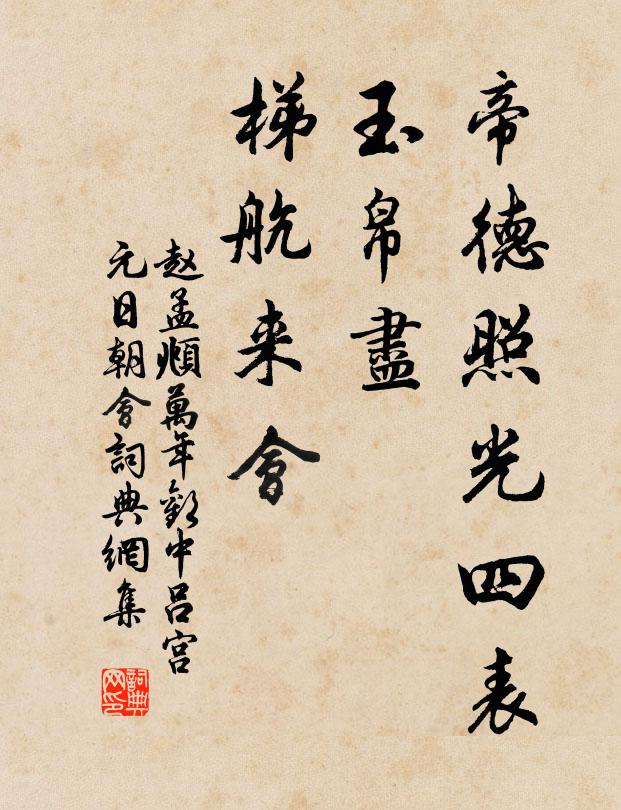 帝德照光四表
玉帛盡
梯航来會
赵孟頫萬年歡中吕宫
元日朝會詞典網集
詞典
网印